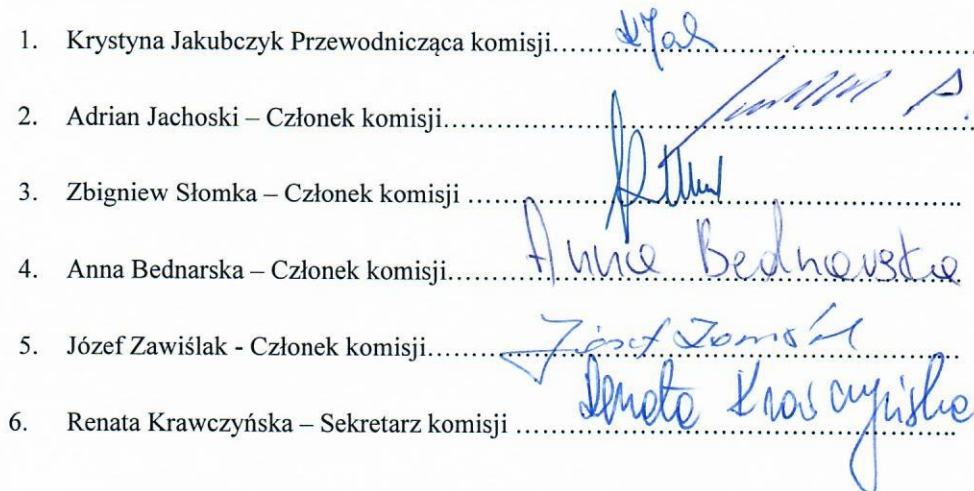 1. Krystyna Jakubczyk Przewodnicząca komisji
2. Adrian Jachoski – Członek komisji
3. Zbigniew Słomka – Członek komisji
4. Anna Bednarska – Członek komisji Anna Bednarska
5. Józef Zawiślak - Członek komisji Józef
6. Renata Krawczyńska – Sekretarz komisji Renata Krawczyńska